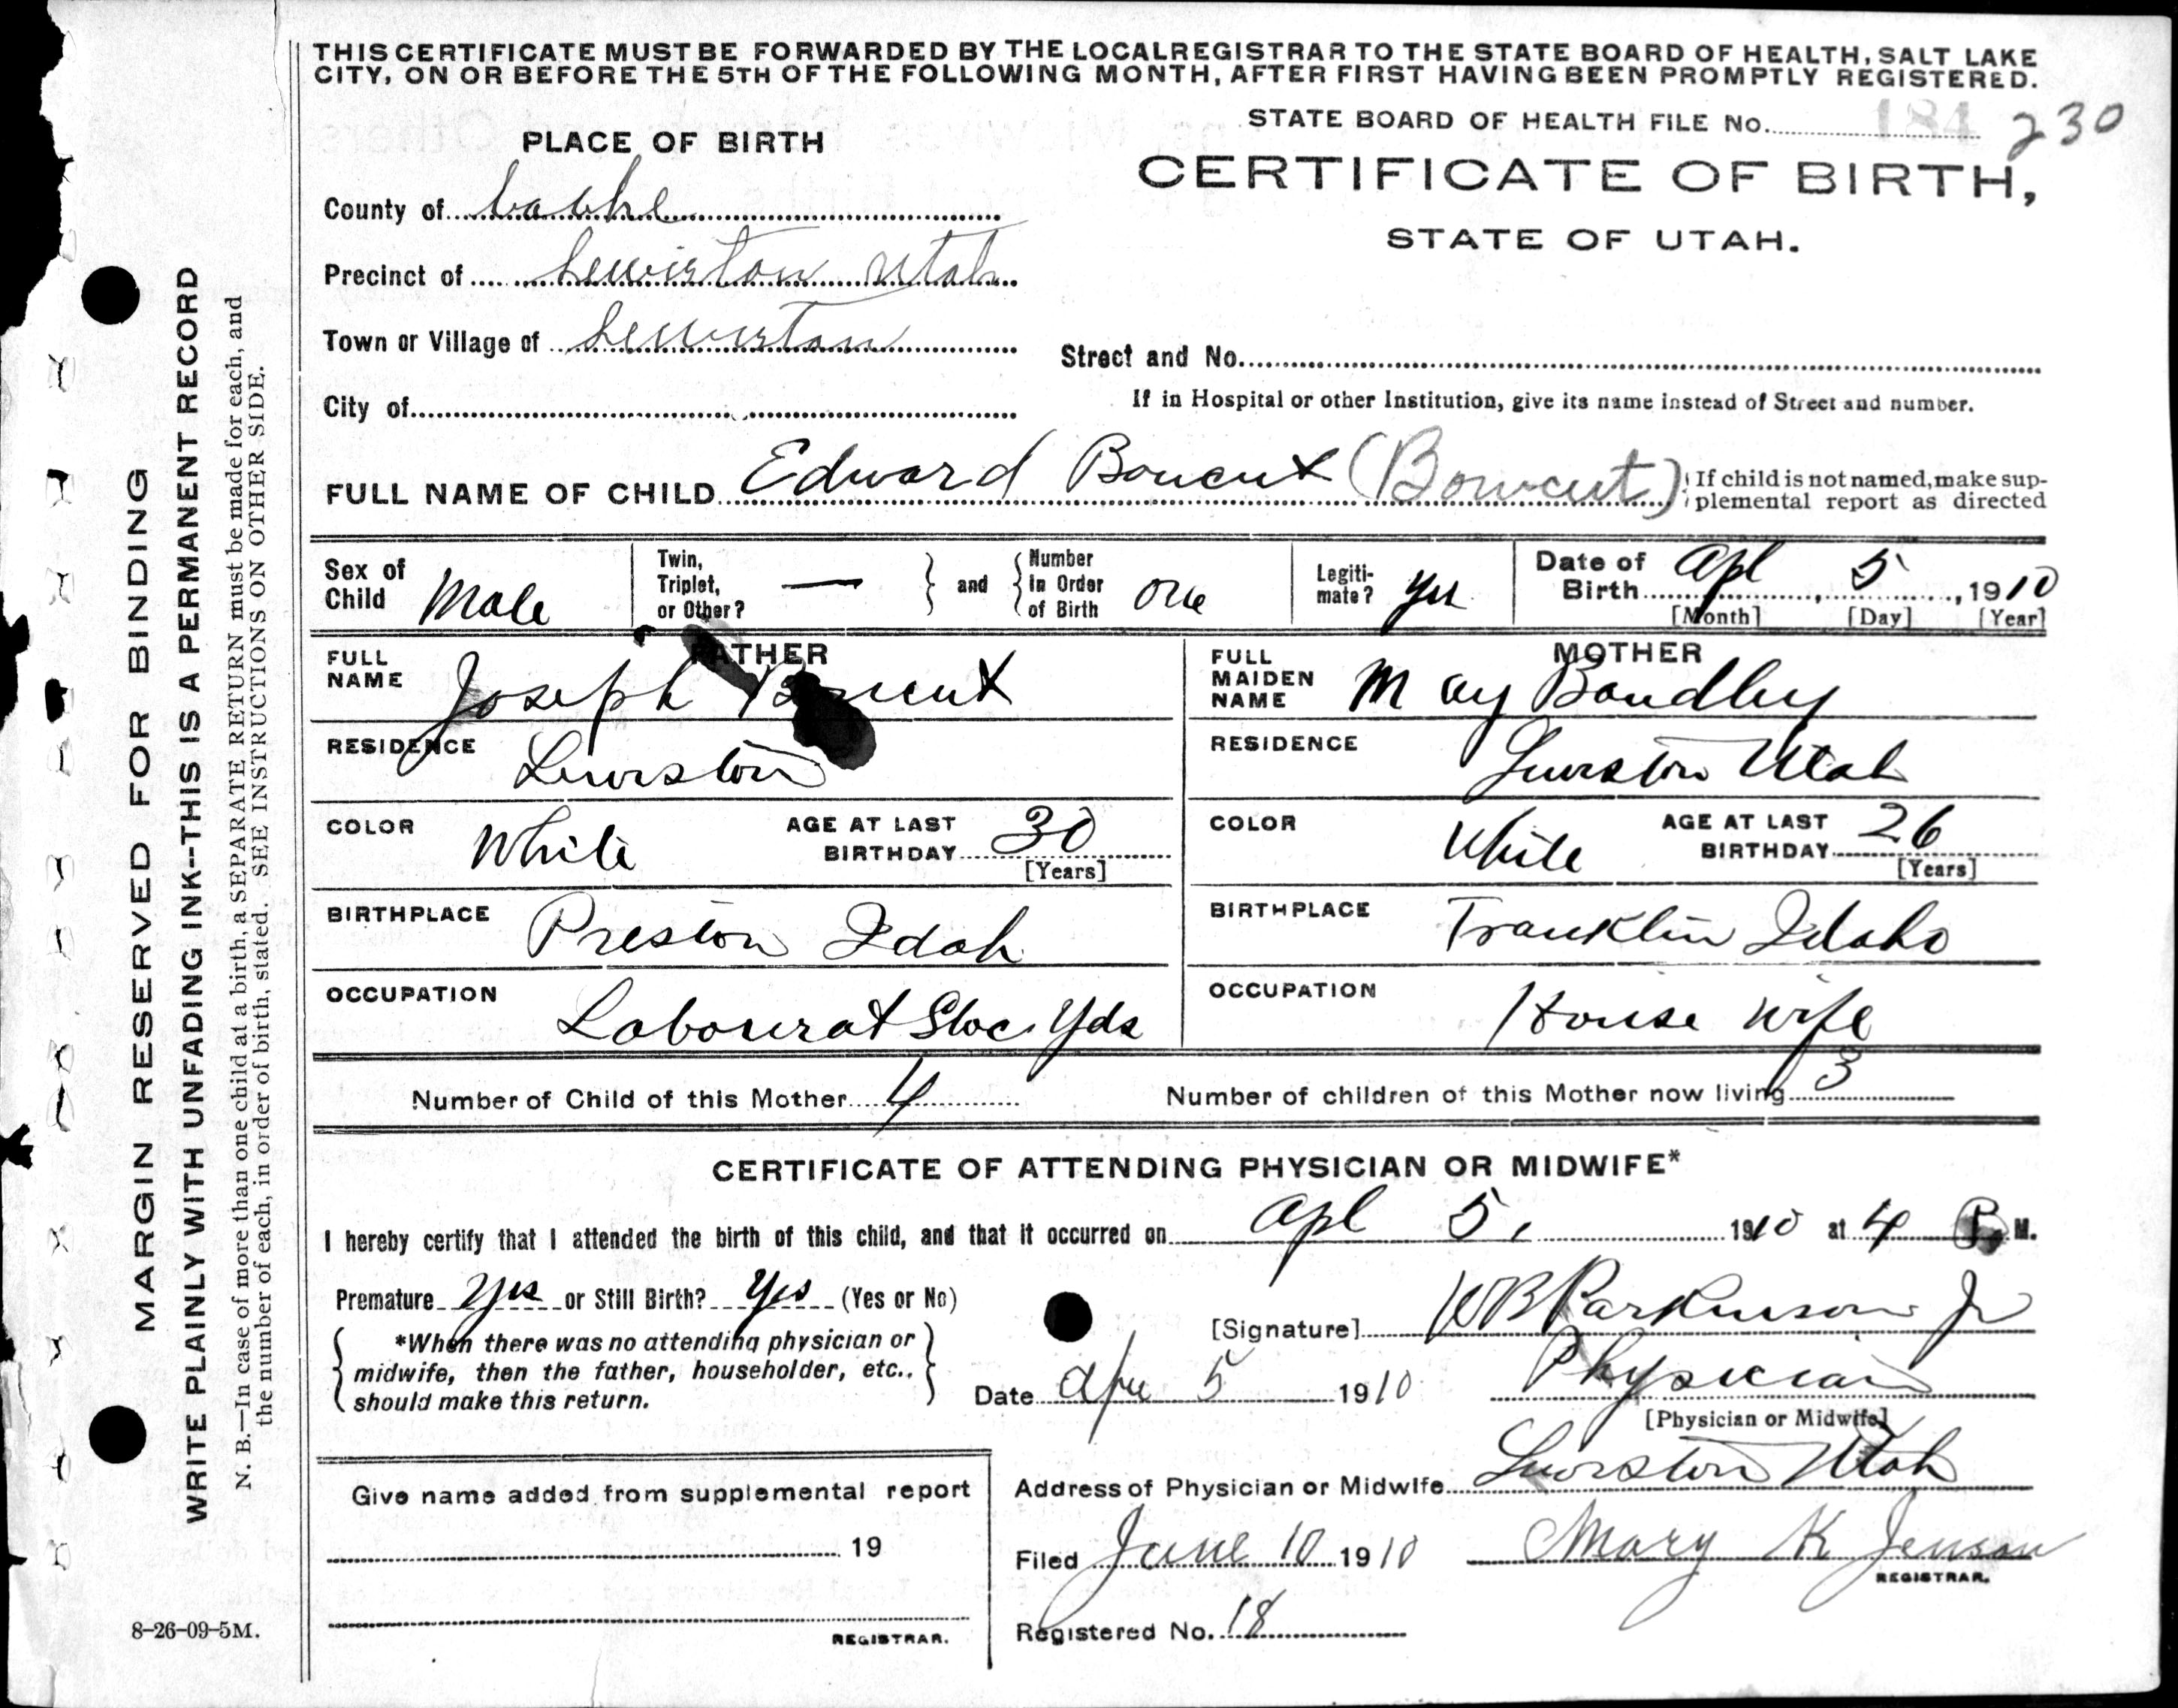 THIS CERTIFICATE MUST BE FORWARDED BY THE LOCAL REGISTRAR TO THE STATE BOARD OF HEALTH, SALT LAKE
CITY, ON OR BEFORE THE 5TH OF THE FOLLOWING MONTH, AFTER FIRST HAVING BEEN PROMPTLY REGISTERED.
STATE BOARD OF HEALTH FILE No. 184 230
PLACE OF BIRTH
CERTIFICATE OF BIRTH,
STATE OF UTAH.
County of Cache
Precinct of Lewiston Utah
Town or Village of Lewiston
Street and No.
City of
If in Hospital or other Institution, give its name instead of Street and number.
FULL NAME OF CHILD Edward Boucut (Bowcut) If child is not named, make sup-
plemental report as directed
Sex of Child Male
Twin, Triplet, or Other? —
and Number In Order of Birth One
Legiti-mate? Yes
Date of Birth Apl 5, 1910
[Month] [Day] [Year]
FATHER
FULL NAME Joseph Boucut
RESIDENCE Lewiston
COLOR White AGE AT LAST BIRTHDAY 30
[Years]
BIRTHPLACE Preston Idah
OCCUPATION Labourat Stoc Yds
MOTHER
FULL MAIDEN NAME May Boudley
RESIDENCE Lewiston Utah
COLOR White AGE AT LAST BIRTHDAY 26
[Years]
BIRTHPLACE Franklin Idaho
OCCUPATION House wife
Number of Child of this Mother 4 Number of children of this Mother now living 3
CERTIFICATE OF ATTENDING PHYSICIAN OR MIDWIFE*
I hereby certify that I attended the birth of this child, and that it occurred on Apl 5, 1910 at 4 P. M.
Premature Yes or Still Birth? Yes (Yes or No)
*When there was no attending physician or
midwife, then the father, householder, etc.,
should make this return.
[Signature] WB Parkinson Jr
Date Apr 5 1910 Physician
[Physician or Midwife]
Address of Physician or Midwife Lewiston Utah
Give name added from supplemental report
19
REGISTRAR.
Filed June 10 1910 Mary K Jenson
REGISTRAR.
Registered No. 18
MARGIN RESERVED FOR BINDING
WRITE PLAINLY WITH UNFADING INK--THIS IS A PERMANENT RECORD
N. B.—In case of more than one child at a birth, a SEPARATE RETURN must be made for each, and
the number of each, in order of birth, stated. SEE INSTRUCTIONS ON OTHER SIDE.
8-26-09-5M.